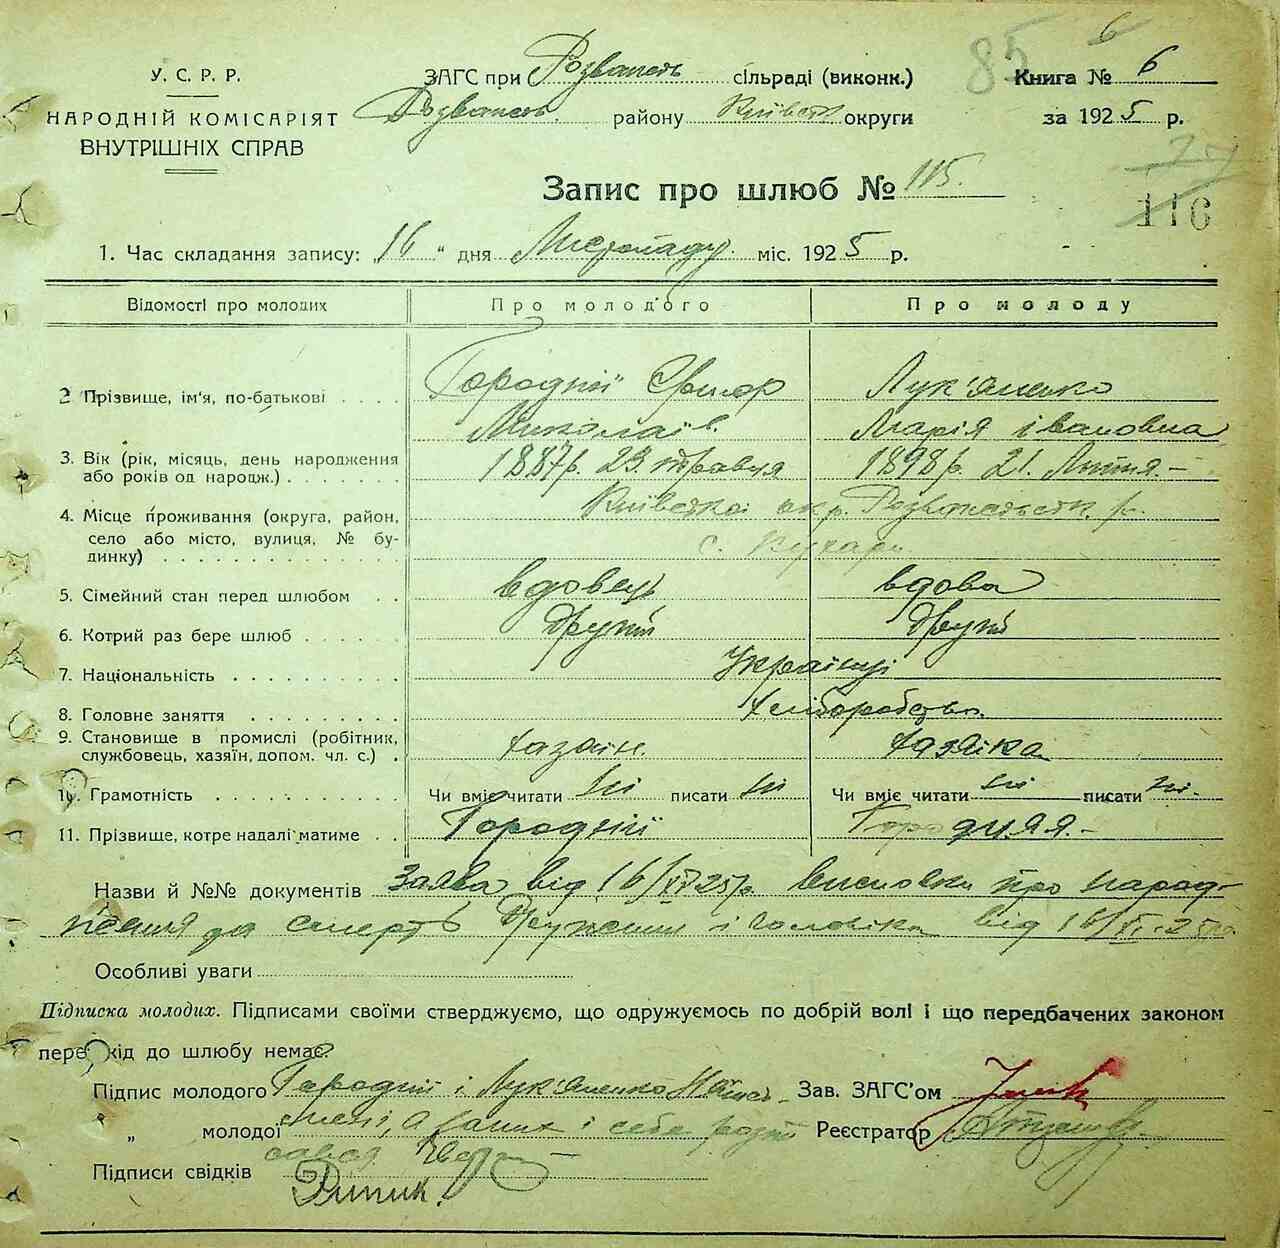 85 6
У. С. Р. Р.
НАРОДНІЙ КОМІСАРІЯТ
ВНУТРІШНІХ СПРАВ
ЗАГС при Розважев сільраді (виконк.)
Розважев. району Київськ округи
Книга № 6
за 1925 р.
Запис про шлюб № 115.
116
1. Час складання запису: „16" дня Листопаду міс. 1925 р.
Відомості про молодих Про молодого Про молоду
2 Прізвище, ім'я, по-батькові Городній Лук'яненко
Миколаїв. Марія Івановна
3. Вік (рік, місяць, день народження 1887р. 23. травня 1898р. 21. Липня.-
або років од народж.)
4. Місце проживання (округа, район, Київська окр. р.
село або місто, вулиця, № бу- с.
динку)
5. Сімейний стан перед шлюбом вдовець вдова
6. Котрий раз бере шлюб Другий Другий
7. Національність Українці
8. Головне заняття Хліборобство.
9. Становище в промислі (робітник, хазяїн. хазяйка
службовець, хазяїн, допом. чл. с.)
10. Грамотність Чи вміє читати ні писати ні Чи вміє читати ні писати ні.
11. Прізвище, котре надалі матиме Городній Городняя.-
Назви й №№ документів Заява від 16/XI 25р. Висновки про народ-
ження да смерть Дружини і чоловіка від 16/XI-25р.
Особливі уваги
Підписка молодих. Підписами своїми стверджуємо, що одружуємось по добрій волі і що передбачених законом
перешкід до шлюбу немає.
Підпис молодого Городній і Лук'яненко Зав. ЗАГС'ом
„ молодої а за них і себе розпи Реєстратор
Підписи свідків сався